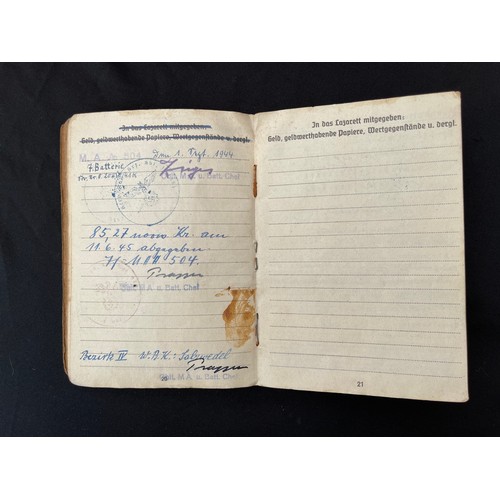 In das Lazarett mitgegeben:
Geld, geldwerthabende Papiere, Wertgegenstände u. dergl.
M. A. A. 504
1. Sept. 1944
7. Batterie
Oblt. M A. u. Batt. Chef
85,27 norw. Kr. am
11.6.45 abgegeben
7/ MAA 504.
Oblt. M A. u. Batt. Chef
Bezirk IV W.B.K.: Salzwedel
Oblt. M A. u. Batt. Chef
20
In das Lazarett mitgegeben:
Geld, geldwerthabende Papiere, Wertgegenstände u. dergl.
21